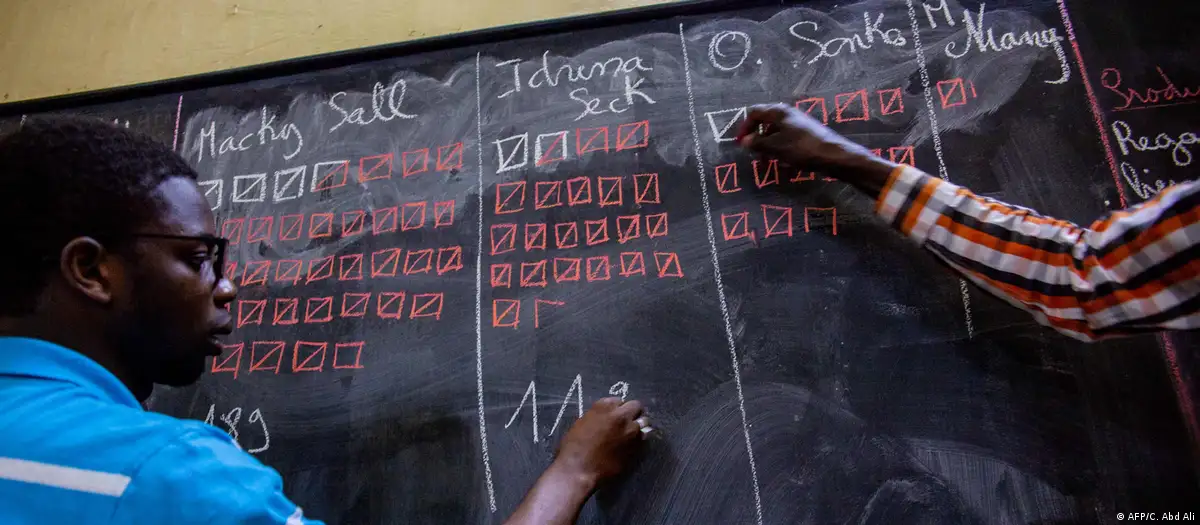 Macky Sall
Idrissa
Seck
O. Sonko
M Niang
189
119
© AFP/C. Abd Ali